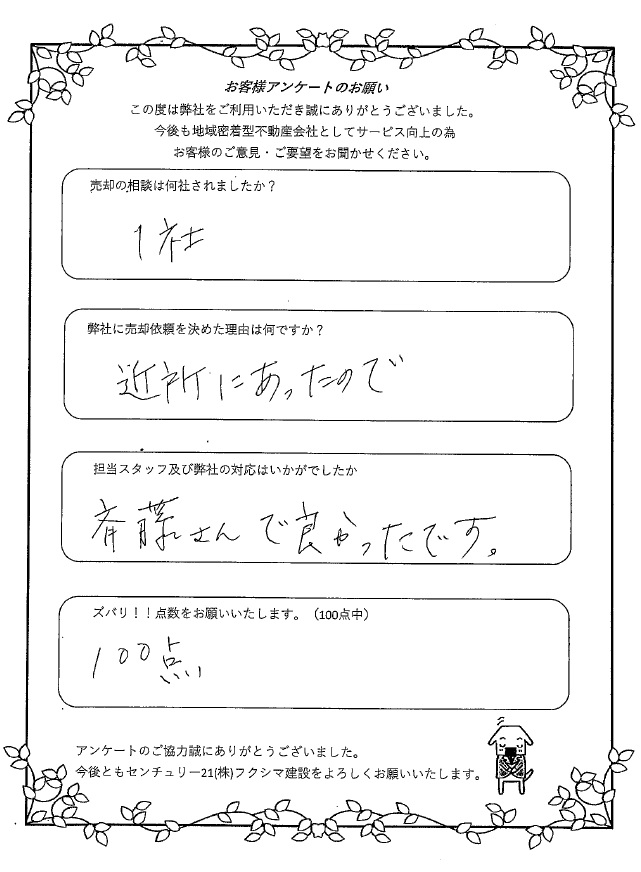 お客様アンケートのお願い
この度は弊社をご利用いただき誠にありがとうございました。
今後も地域密着型不動産会社としてサービス向上の為
お客様のご意見・ご要望をお聞かせください。
売却の相談は何社されましたか？
1社
弊社に売却依頼を決めた理由は何ですか？
近所にあったので
担当スタッフ及び弊社の対応はいかがでしたか
斉藤さんで良かったです。
ズバリ！！点数をお願いいたします。（100点中）
100点
アンケートのご協力誠にありがとうございました。
今後ともセンチュリー21(株)フクシマ建設をよろしくお願いいたします。